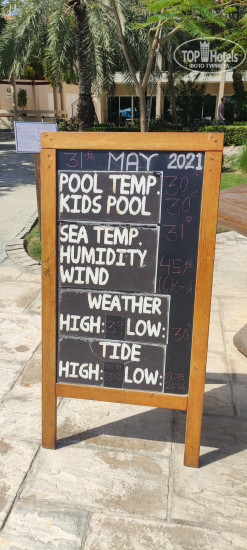 TOP HOTELS
ФОТО ТУРИСТА
31th MAY 2021
POOL TEMP. 30°
KIDS POOL 30°
SEA TEMP. 31°
HUMIDITY 45%
WIND 16Km/h
WEATHER
HIGH: 37 LOW: 30
TIDE
HIGH: LOW: